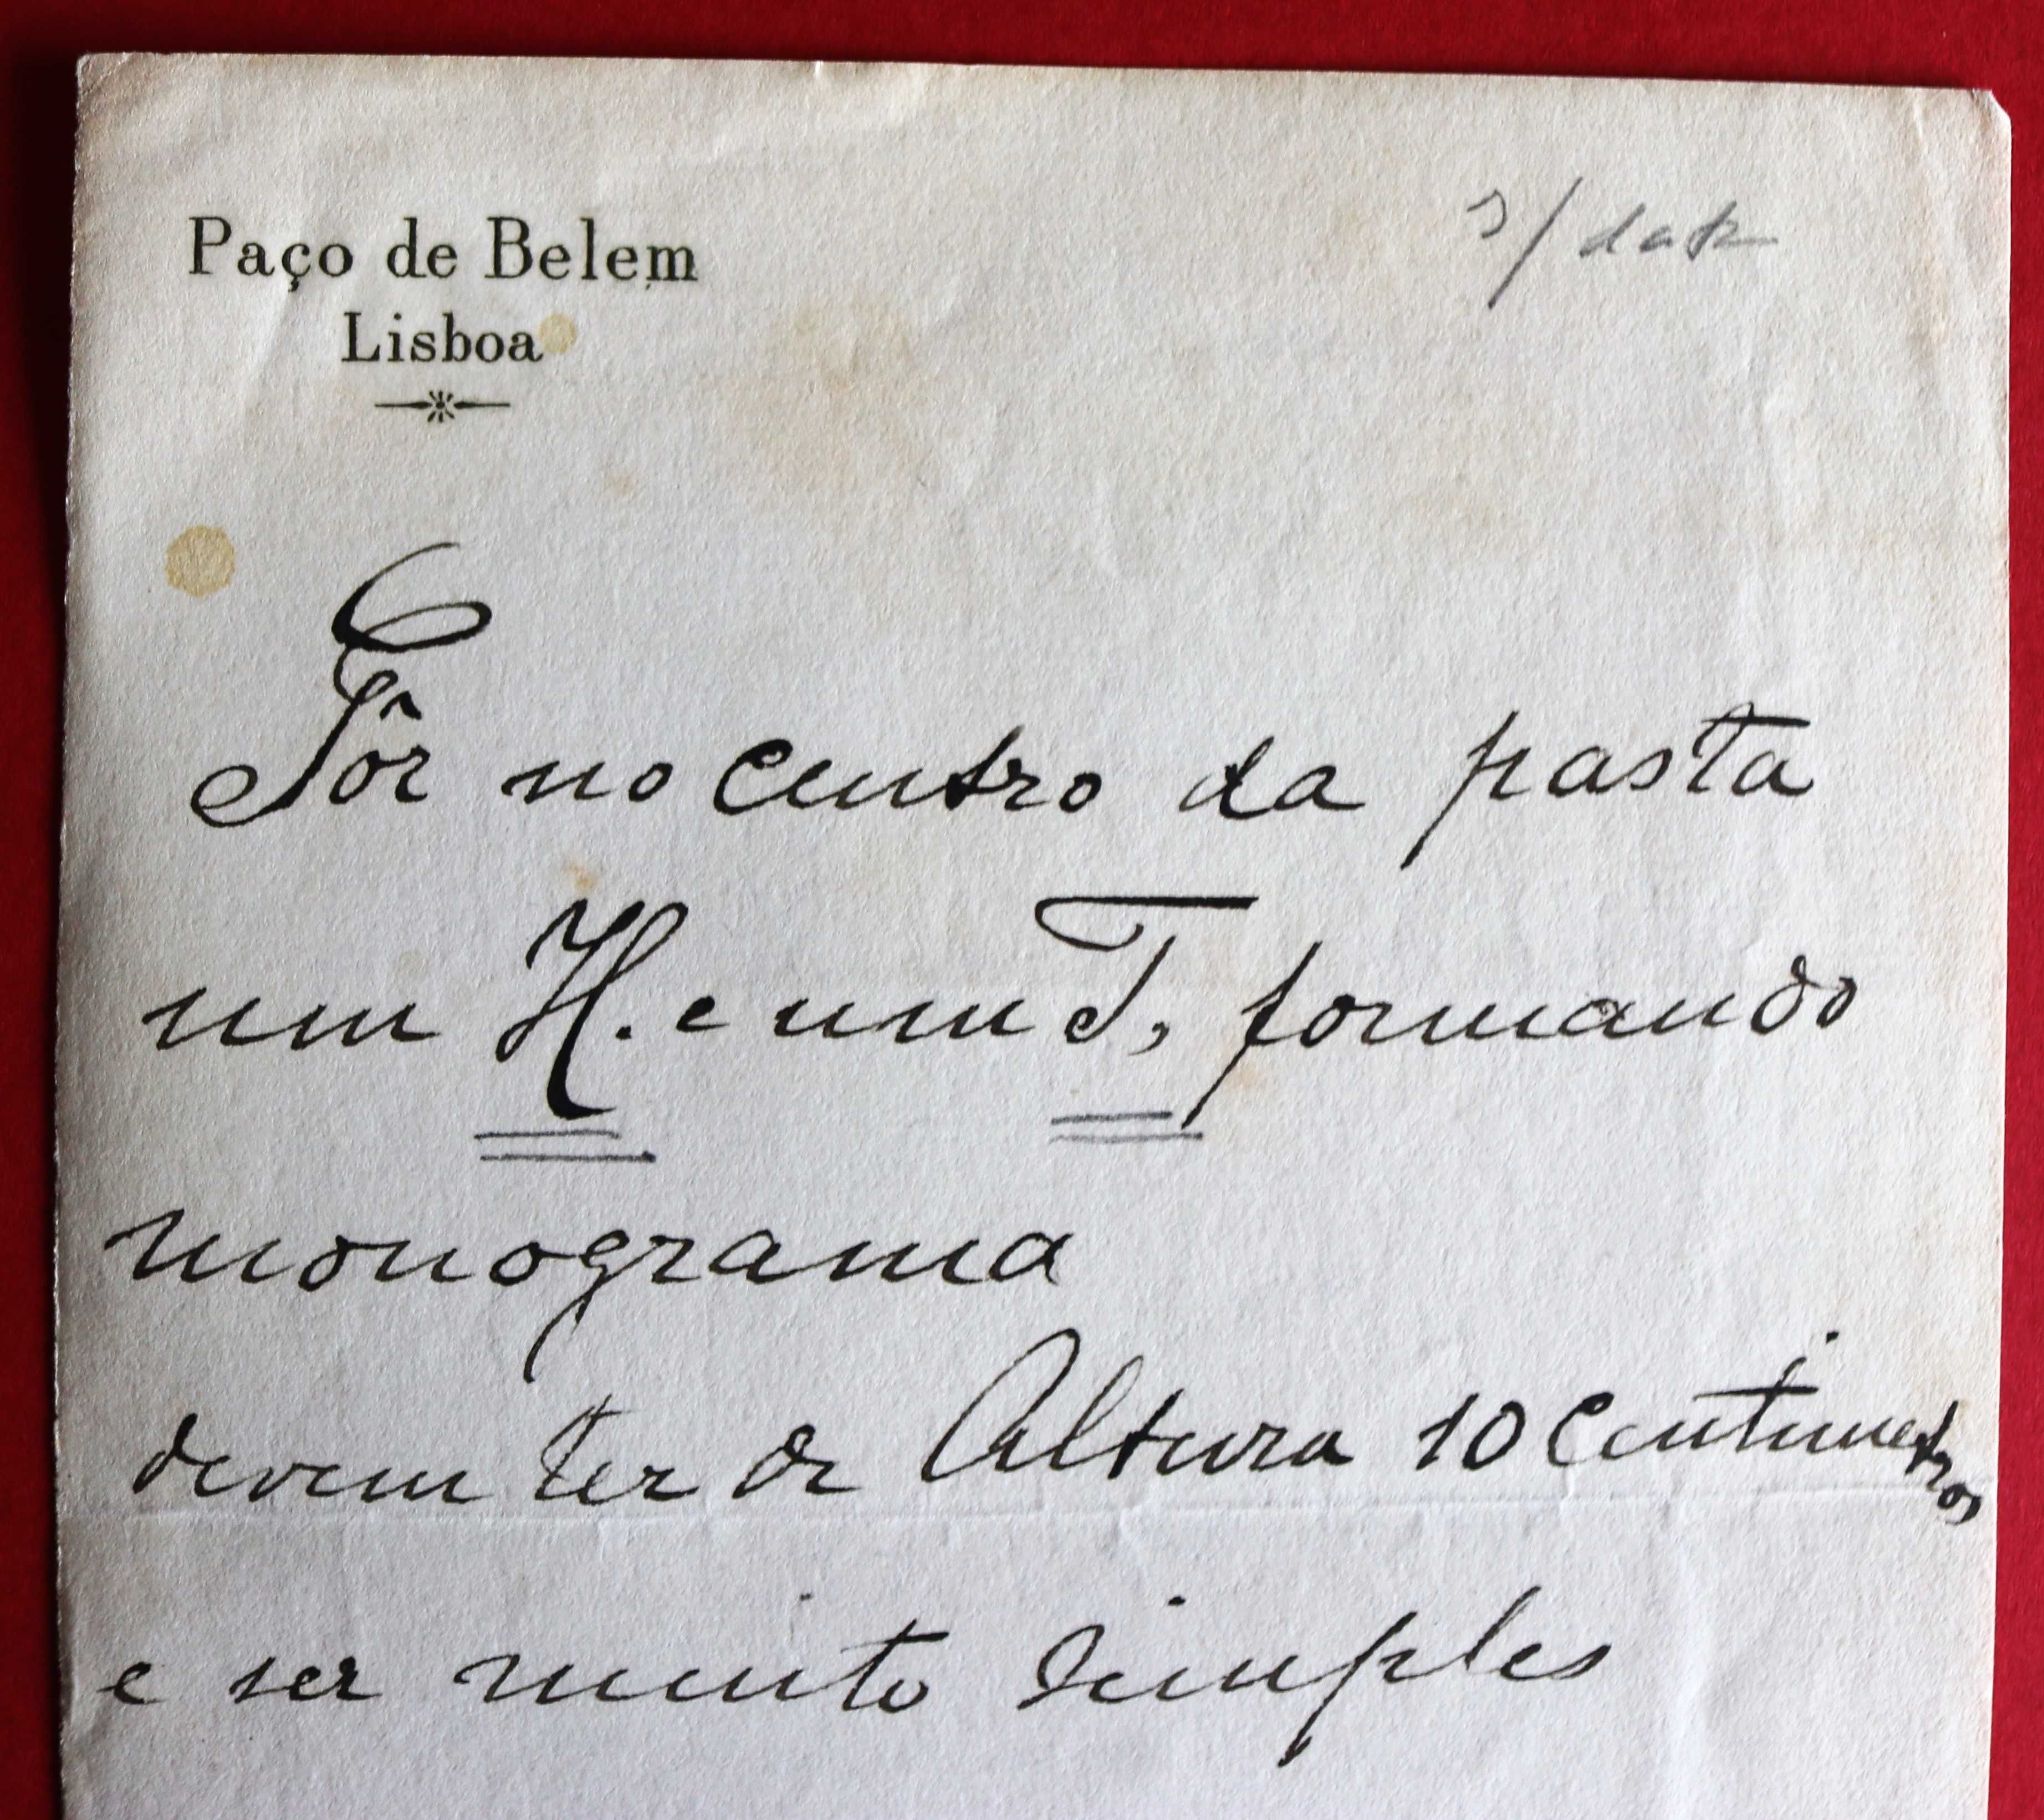 Paço de Belem
Lisboa
s/ data
Pôr no Centro da pasta
um H. e um T, formando
monograma
devem ter de Altura 10 Centimetros
e ser muito Simples